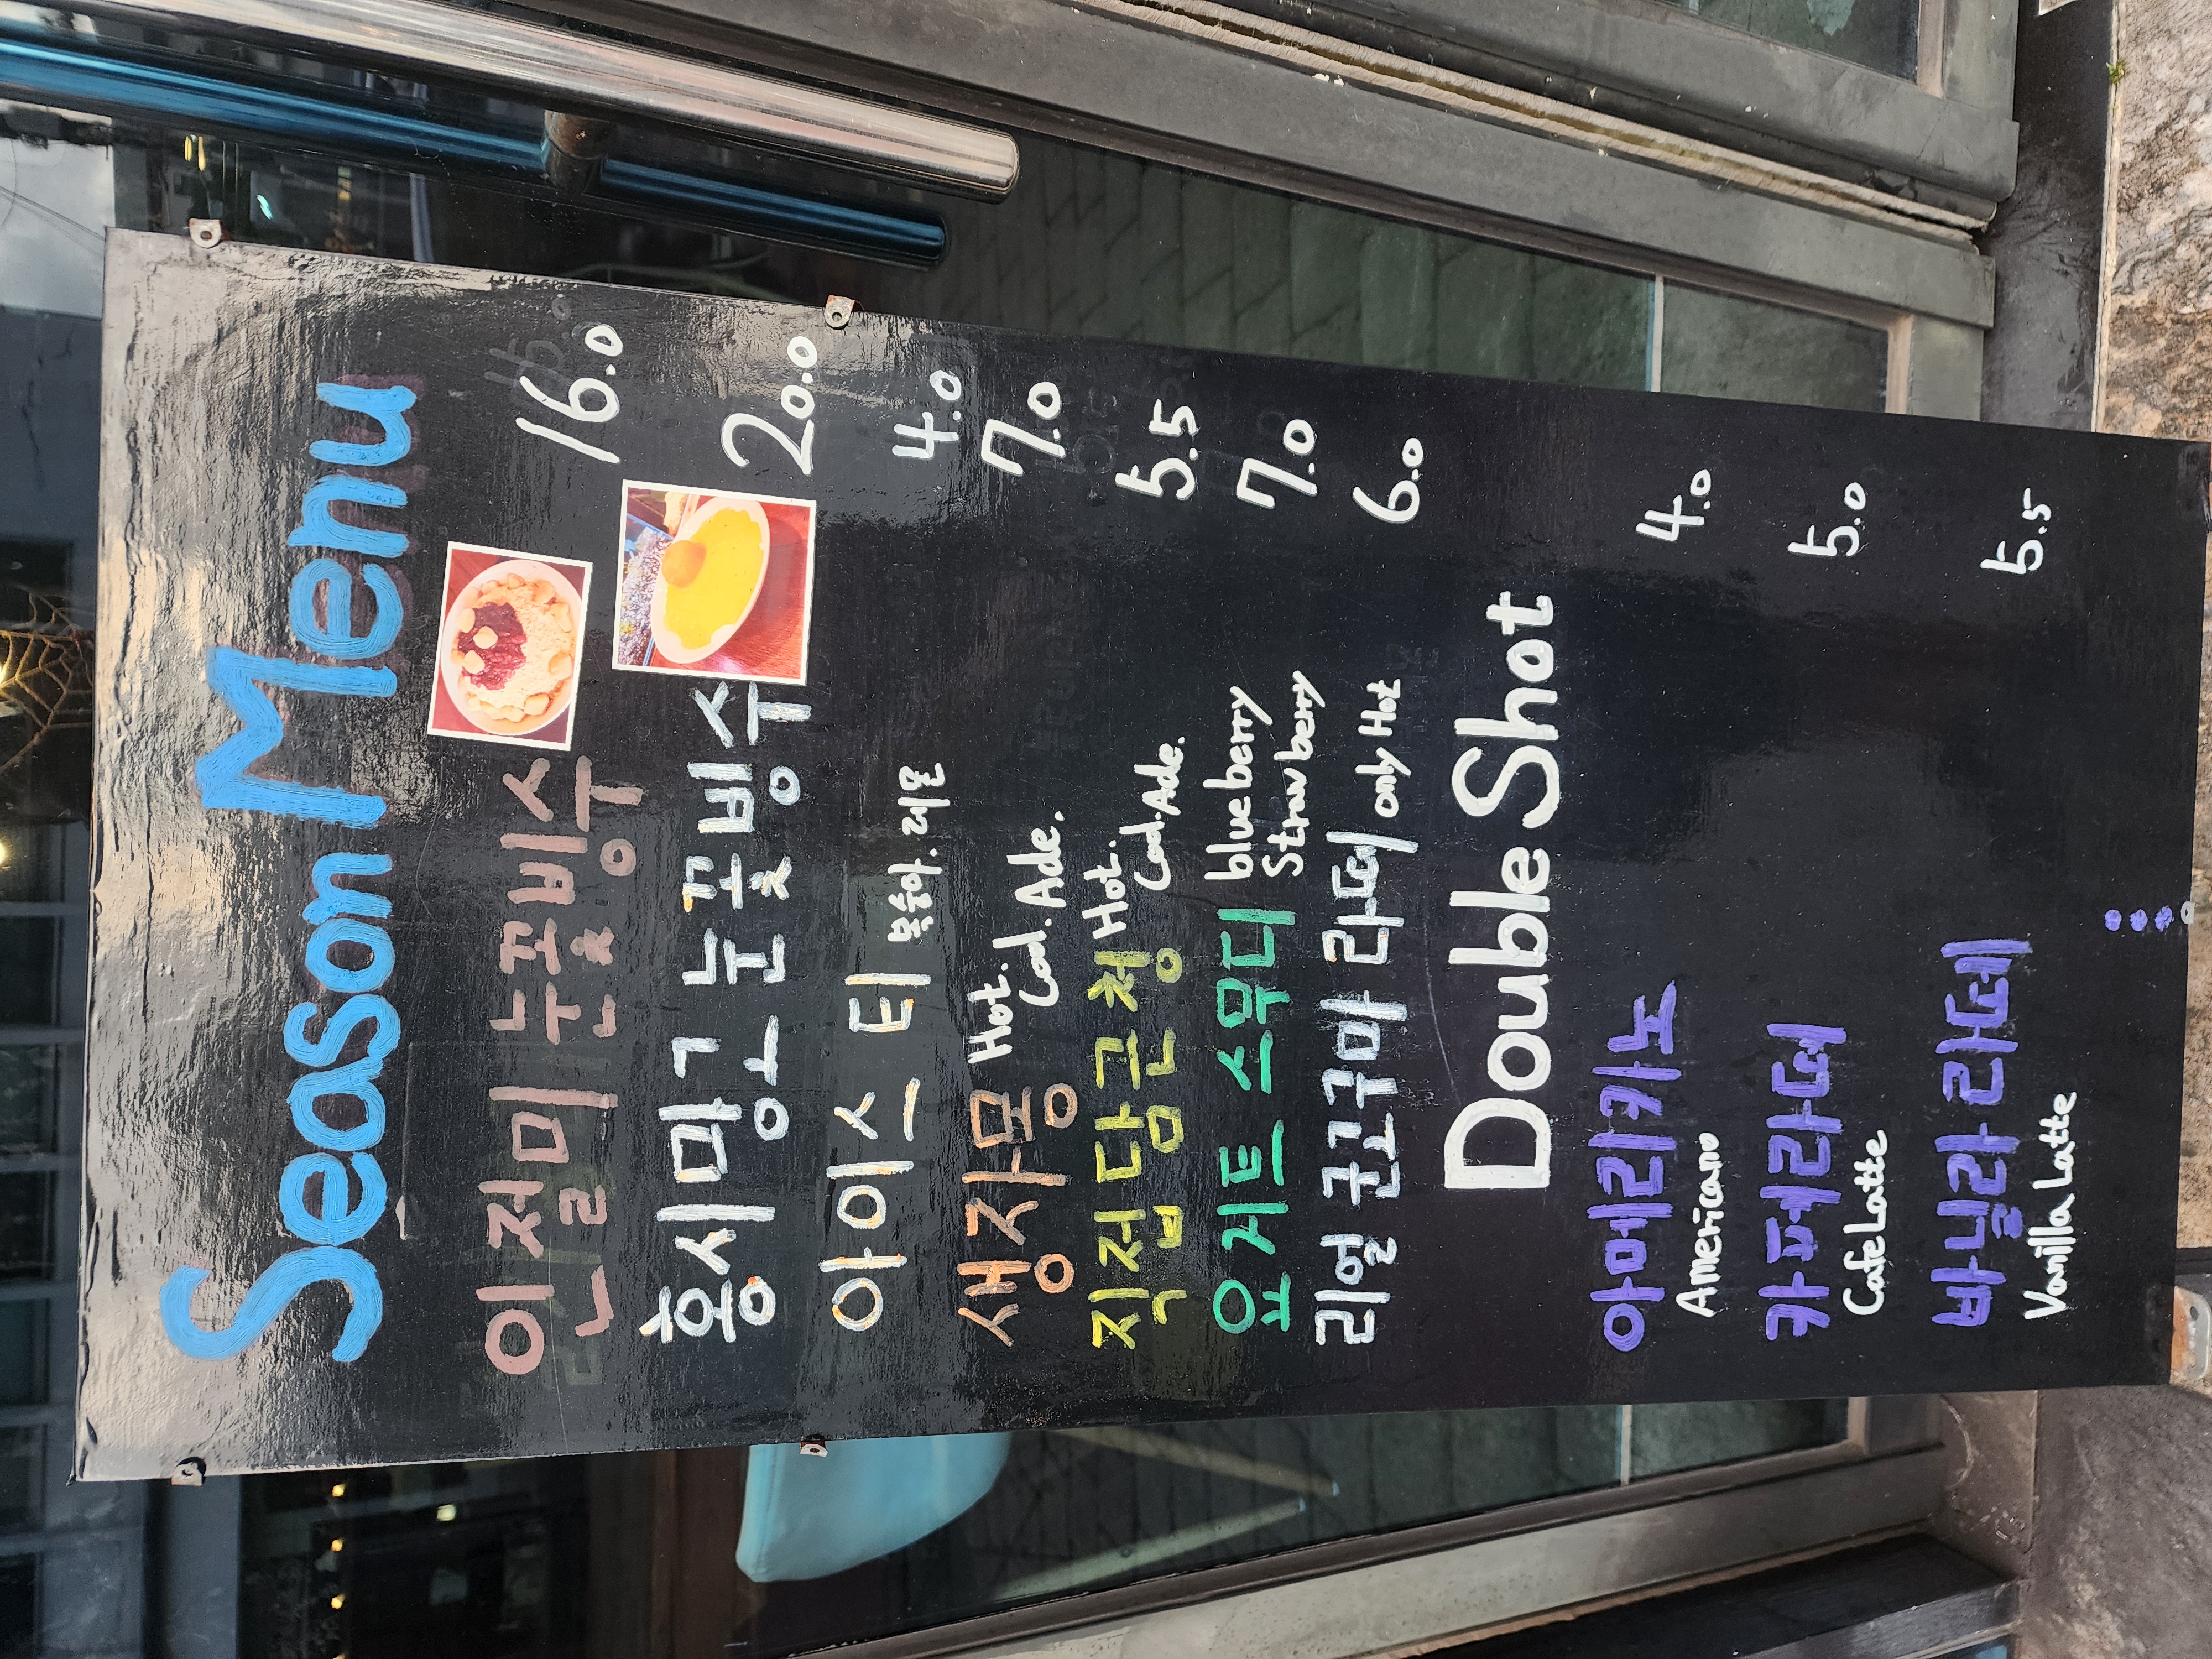 Season Menu
인절미 눈꽃빙수 16.0
홍시망고 눈꽃빙수 20.0
아이스티 복숭아.레몬 4.0
생자몽 Hot. Cool.Ade. 7.0
직접담근청 Hot. Cool.Ade. 5.5
요거트 스무디 blueberry Strawberry 7.0
리얼 군고구마 라떼 only Hot 6.0
Double Shot
아메리카노 4.0
Americano
카페라떼 5.0
Cafe Latte
바닐라 라떼 5.5
Vanilla Latte